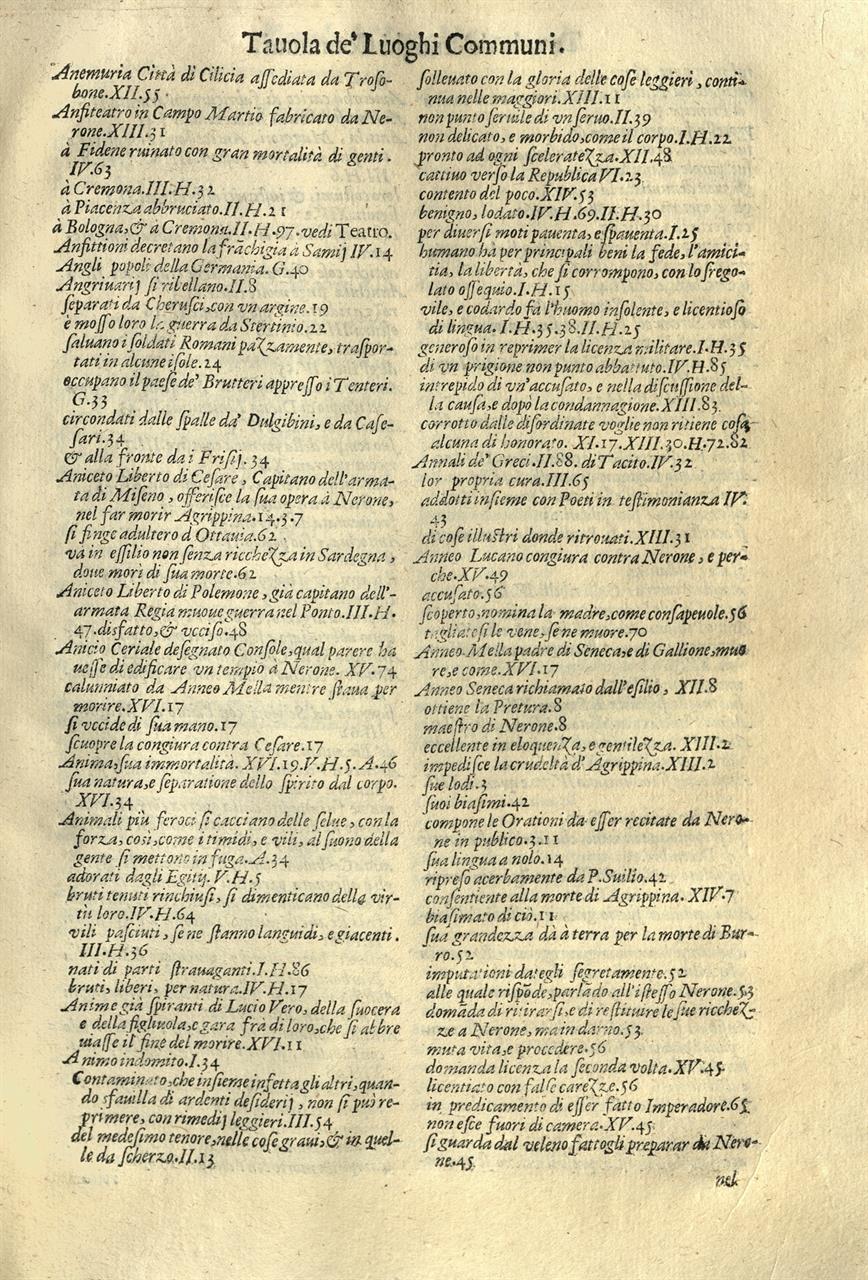 Tauola de' Luoghi Communi.
Anemuria Città di Cilicia assediata da Troso-
bone.XII.55
Anfiteatro in Campo Martio fabricato da Ne-
rone.XIII.31
à Fidene ruinato con gran mortalità di genti.
IV.63
à Cremona.III.H.32
à Piacenza abbruciato.II.H.21
à Bologna,& à Cremona.II.H.97.vedi Teatro.
Anfittioni decretano la frāchigia à Samij IV.14
Angli popoli della Germania. G.40
Angriuarij si ribellano.II.8
separati da Cherusci,con vn argine.19
è mosso loro la guerra da Stertinio.22
saluano i soldati Romani pazzamente, traspor-
tati in alcune isole.24
occupano il paese de' Brutteri appresso i Tenteri.
G.33
circondati dalle spalle da' Dulgibini, e da Case-
sari.34
& alla fronte da i Frisij.34
Aniceto Liberto di Cesare, Capitano dell'arma-
ta di Miseno, offerisce la sua opera à Nerone,
nel far morir Agrippina.14.3.7
si finge adultero d Ottauia.62
và in essilio non senza ricchezza in Sardegna,
doue morì di sua morte.62
Aniceto Liberto di Polemone, già capitano dell'-
armata Regia muoue guerra nel Ponto.III.H.
47.disfatto,& vcciso.48
Anicio Ceriale desegnato Console,qual parere ha
uesse di edificare vn tempio à Nerone. XV.74
calunniato da Anneo Mella mentre staua per
morire.XVI.17
si vccide di sua mano.17
scuopre la congiura contra Cesare.17
Anima,sua immortalità. XVI.19.V.H.5.A.46
sua natura,e separatione dello spirito dal corpo.
XVI.34
Animali più feroci si cacciano delle selue, con la
forza, così,come i timidi, e vili, al suono della
gente si mettono in fuga.A.34
adorati dagli Egitij. V.H.5
bruti tenuti rinchiusi, si dimenticano della vir-
tù loro.IV.H.64
vili pasciuti, se ne stanno languidi, e giacenti.
III.H.36
nati di parti strauaganti.I.H.86
bruti, liberi, per natura.IV.H.17
Anime già spiranti di Lucio Vero, della suocera
e della figliuola,e gara frà di loro,che si abbre
uiasse il fine del morire.XVI.11
Animo indomito.I.34
Contaminato,che insieme infetta gli altri,quan-
do sfauilla di ardenti desiderij, non si può re-
primere, con rimedij leggieri.III.54
del medesimo tenore,nelle cose graui,& in quel-
le da scherzo.II.13
solleuato con la gloria delle cose leggieri, conti-
nua nelle maggiori.XIII.11
non punto seruile di vn seruo.II.39
non delicato, e morbido,come il corpo.I.H.22
pronto ad ogni sceleratezza.XII.48
cattiuo verso la Republica VI.23
contento del poco.XIV.53
benigno, lodato.IV.H.69.II.H.30
per diuersi moti pauenta, e spauenta.I.25
humano hà per principali beni la fede, l'amici-
tia, la libertà, che si corrompono, con lo srego-
lato ossequio.I.H.15
vile, e codardo fà l'huomo insolente, e licentioso
di lingua. I.H.35.38.II.H.25
generoso in reprimer la licenza militare.I.H.35
di vn prigione non punto abbattuto.IV.H.85
intrepido di vn'accusato, e nella discussione del-
la causa,e dopò la condannagione.XIII.83.
corrotto dalle disordinate voglie non ritiene cosa
alcuna di honorato. XI.17.XIII.30.H.72.82
Annali de' Greci.II.88. di Tacito.IV.32
lor propria cura.III.65
addotti insieme con Poeti in testimonianza IV.
43
di cose illustri donde ritrouati.XIII.31
Anneo Lucano congiura contra Nerone, e per-
che.XV.49
accusato.56
scoperto,nomina la madre,come consapeuole.56
tagliatesi le vene, se ne muore.70
Anneo Mella padre di Seneca,e di Gallione,muo
re,e come.XVI.17
Anneo Seneca richiamato dall'esilio, XII.8
ottiene la Pretura.8
maestro di Nerone.8
eccellente in eloquenza, e gentilezza. XIII.2
impedisce la crudeltà d' Agrippina.XIII.2
sue lodi.3
suoi biasimi.42
compone le Orationi da esser recitate da Nero-
ne in publico.3.11
sua lingua a nolo.14
ripreso acerbamente da P.Suilio.42
consentiente alla morte di Agrippina. XIV.7
biasimato di ciò.11
sua grandezza dà à terra per la morte di Bur-
ro.52
imputationi dategli segretamente.52
alle quale rispōde,parlādo all'istesso Nerone.53
domāda di ritirarsi,e di restituire le sue ricchez-
ze a Nerone, ma in darno.53
muta vita,e procedere.56
domanda licenza la seconda volta.XV.45
licentiato con false carezze.56
in predicamento di esser fatto Imperadore.65
non esce fuori di camera.XV.45
si guarda dal veleno fattogli preparar da Nero-
ne.45
nel